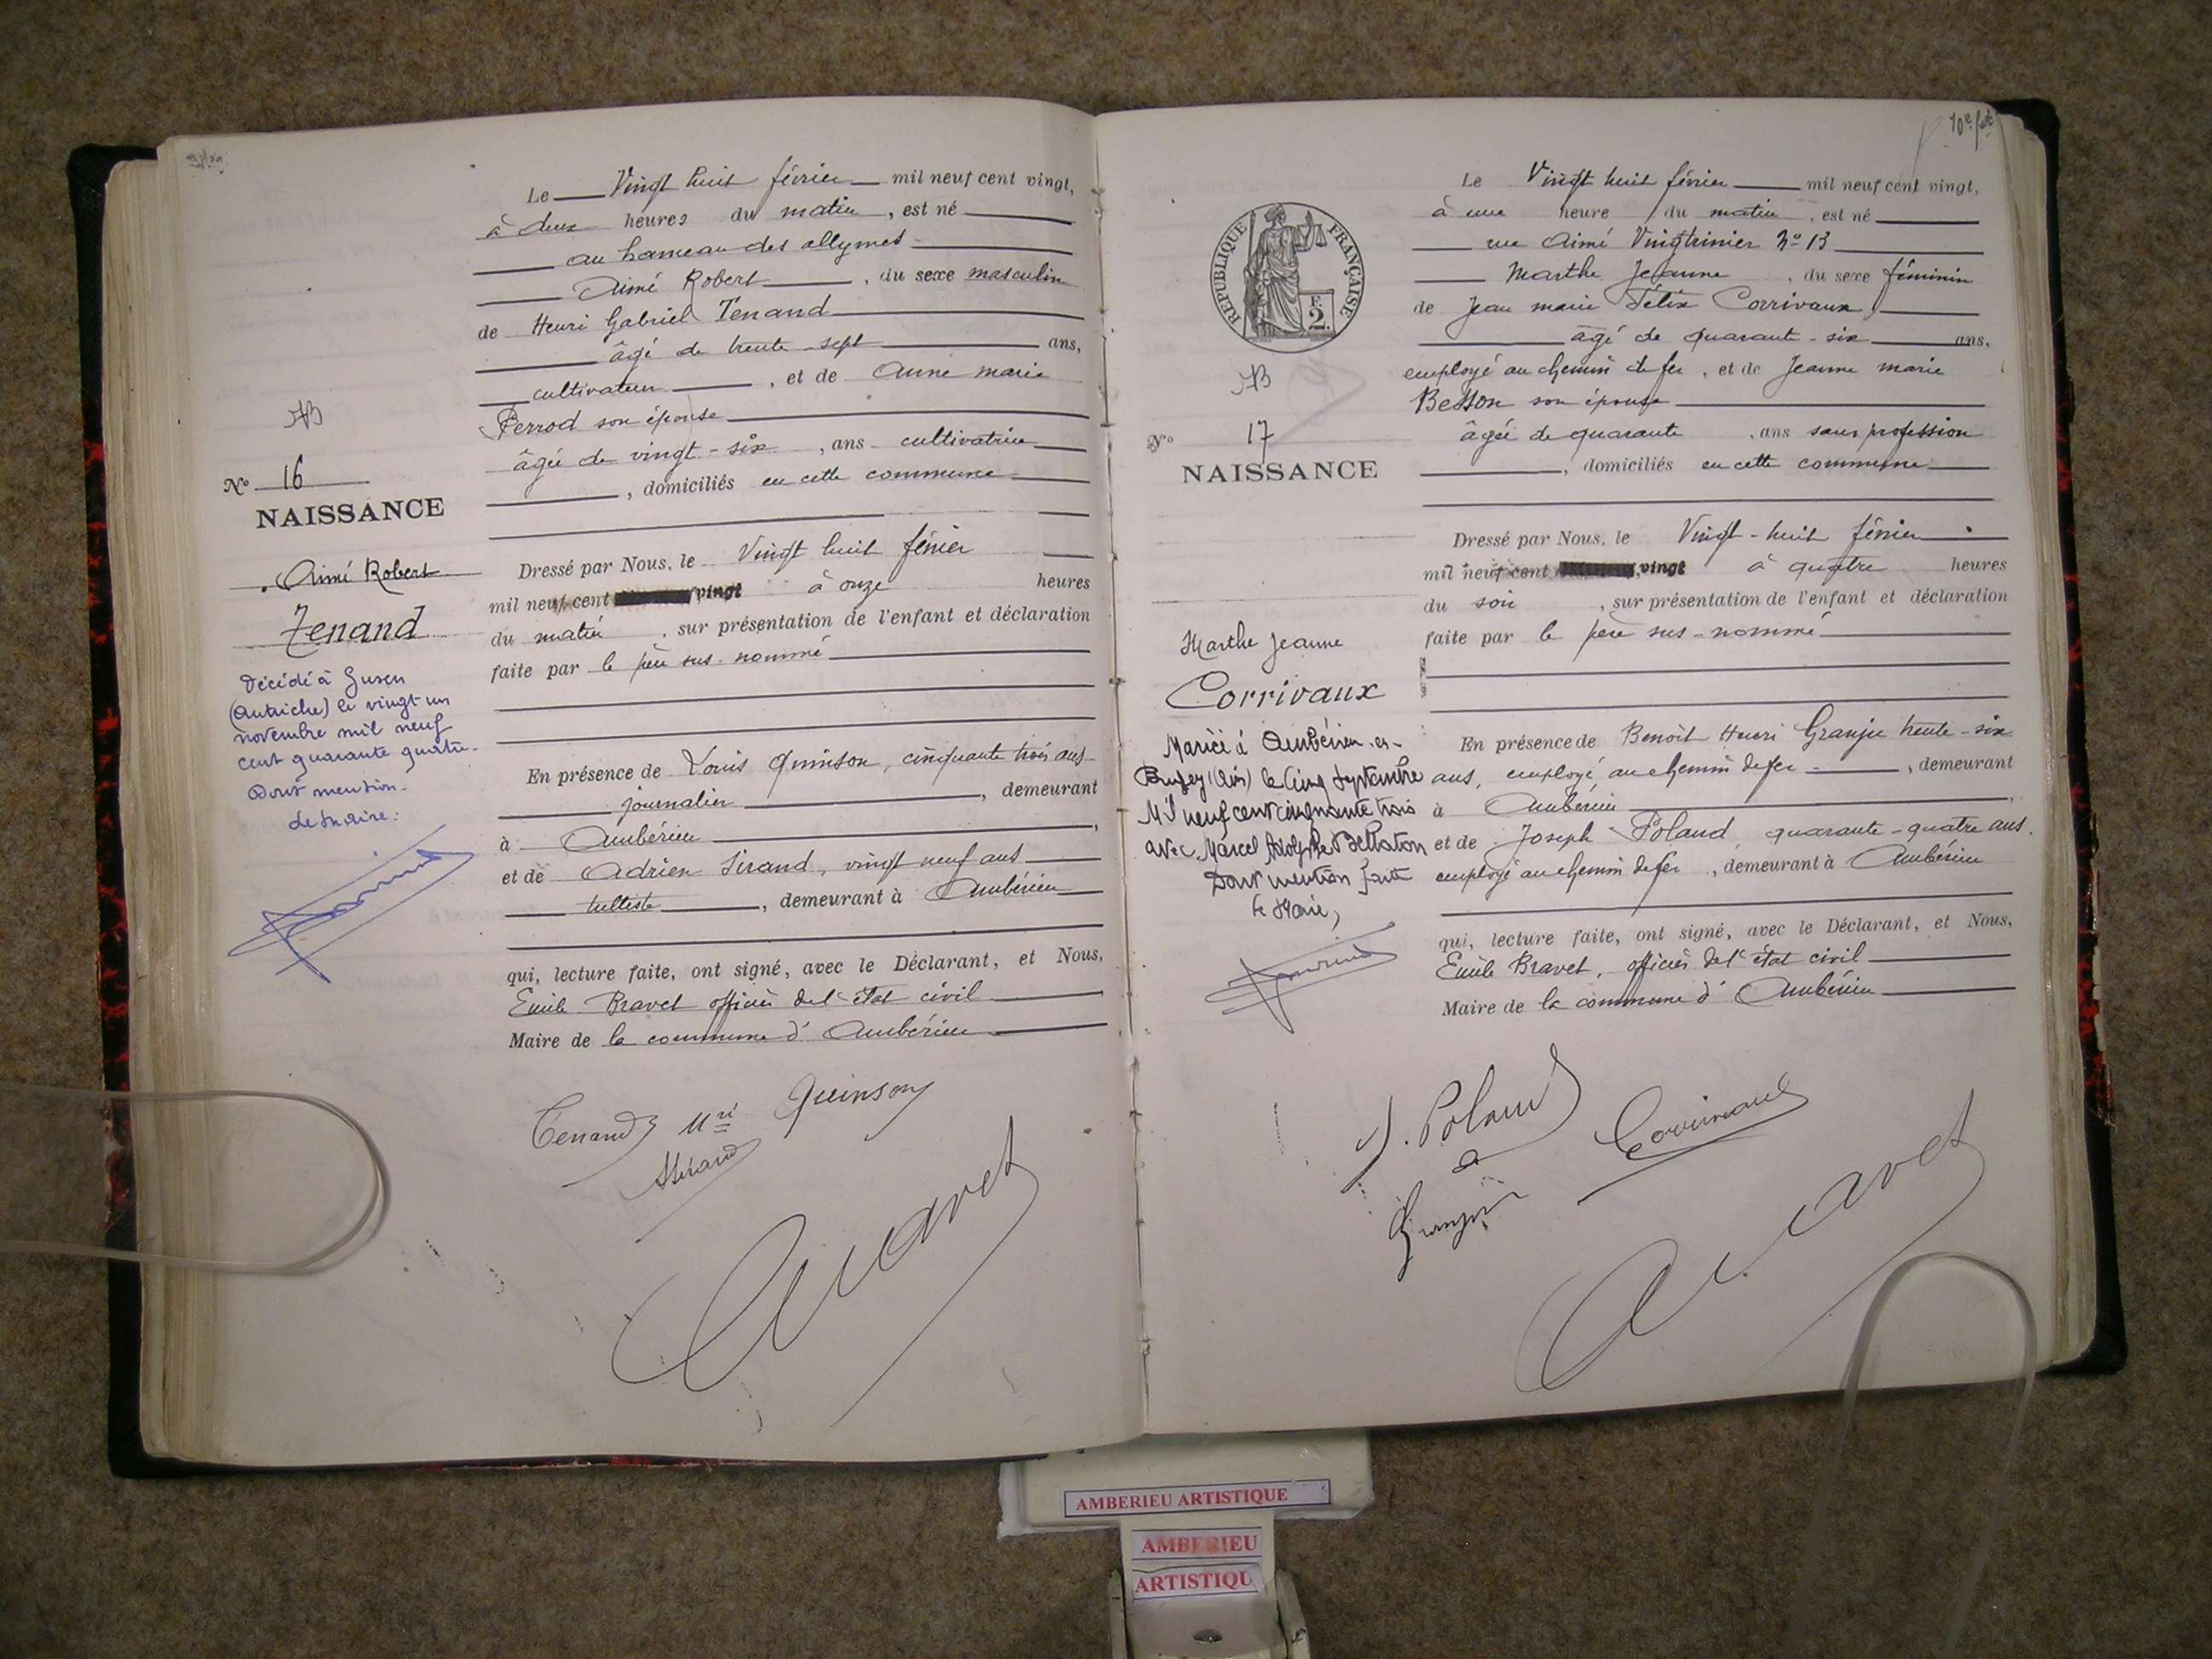 Le Vingt huit février mil neuf cent vingt,
à deux heures du matin, est né
au hameau des allymes
Aimé Robert, du sexe masculin
de Henri Gabriel Tenand
âgé de trente-sept ans,
cultivateur, et de Anne marie
Perrod son épouse
âgée de vingt-six, ans cultivatrice
, domiciliés en cette commune
AB
No 16
NAISSANCE
Aimé Robert
Tenand
Décédé à Gusen
(Autriche) le vingt un
novembre mil neuf
cent quarante quatre.
Dont mention.
le Maire:
Dressé par Nous, le Vingt huit février
mil neuf cent vingt à onze heures
du matin, sur présentation de l'enfant et déclaration
faite par le père sus-nommé
En présence de Louis Quinson, cinquante trois ans
journalier, demeurant
à Ambérieu,
et de Adrien Sirand, vingt neuf ans
tulliste, demeurant à Ambérieu
qui, lecture faite, ont signé, avec le Déclarant, et Nous,
Emile Bravet officier de l'état civil
Maire de la commune d'Ambérieu
Tenand Quinson
ASirand
Bravet
10e fet
Le Vingt huit février mil neuf cent vingt,
à une heure du matin, est né
rue Aimé Vingtrinier No 13
Marthe Jeanne, du sexe féminin
de Jean marie Félix Corrivaux
âgé de quarante-six ans,
employé au chemin de fer, et de Jeanne marie
Besson son épouse
âgée de quarante, ans sans profession
, domiciliés en cette commune
RÉPUBLIQUE FRANÇAISE
F.
2
AB
No 17
NAISSANCE
Marthe Jeanne
Corrivaux
Mariée à Ambérieu-en-
Bugey (Ain) le cinq Septembre
Mil neuf cent cinquante trois
avec Marcel Adolphe
Dont mention faite
le Maire,
Dressé par Nous, le Vingt-huit février
mil neuf cent vingt à quatre heures
du soir, sur présentation de l'enfant et déclaration
faite par le père sus-nommé
En présence de Benoit Henri Granju trente-six
ans, employé au chemin de fer, demeurant
à Ambérieu,
et de Joseph Poland quarante-quatre ans.
employé au chemin de fer, demeurant à Ambérieu
qui, lecture faite, ont signé, avec le Déclarant, et Nous,
Emile Bravet, officier de l'état civil
Maire de la commune d'Ambérieu
J. Poland Corrivaux
Granju
Bravet
AMBERIEU ARTISTIQUE
AMBERIEU
ARTISTIQU